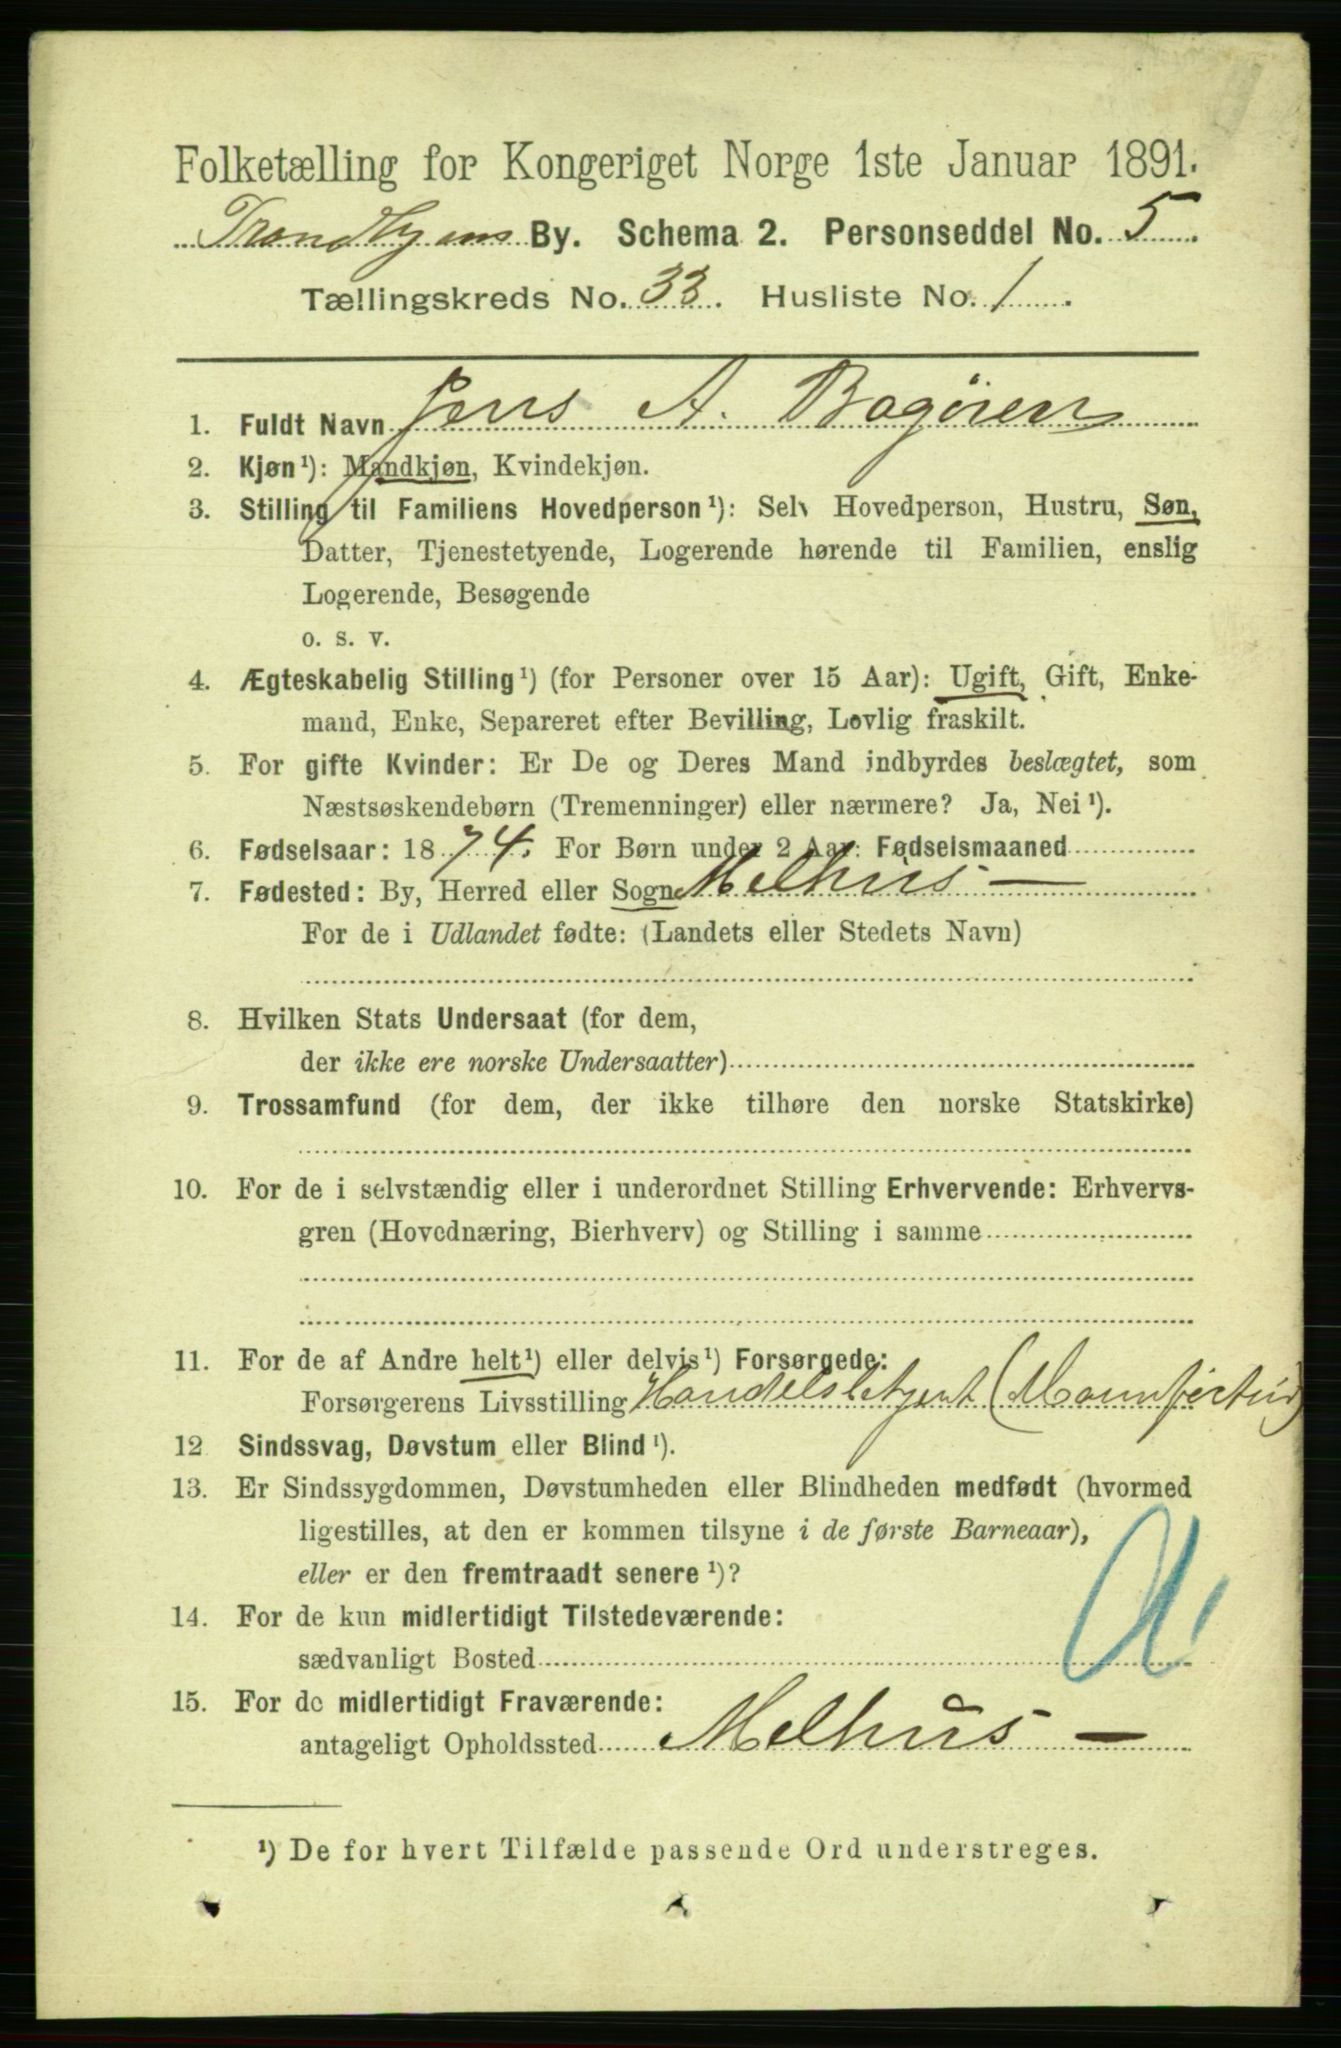 Folketælling for Kongeriget Norge 1ste Januar 1891.
Trondhjems By. Schema 2. Personseddel No. 5
Tællingskreds No. 33. Husliste No. 1
1. Fuldt Navn Jens A. Bagøien
2. Kjøn¹): Mandkjøn, Kvindekjøn.
3. Stilling til Familiens Hovedperson¹): Selv Hovedperson, Hustru, Søn,
Datter, Tjenestetyende, Logerende hørende til Familien, enslig
Logerende, Besøgende
o. s. v.
4. Ægteskabelig Stilling¹) (for Personer over 15 Aar): Ugift, Gift, Enke-
mand, Enke, Separeret efter Bevilling, Lovlig fraskilt.
5. For gifte Kvinder: Er De og Deres Mand indbyrdes beslægtet, som
Næstsøskendebørn (Tremenninger) eller nærmere? Ja, Nei¹).
6. Fødselsaar: 1874. For Børn under 2 Aar: Fødselsmaaned
7. Fødested: By, Herred eller Sogn Melhus —
For de i Udlandet fødte: (Landets eller Stedets Navn)
8. Hvilken Stats Undersaat (for dem,
der ikke ere norske Undersaatter)
9. Trossamfund (for dem, der ikke tilhøre den norske Statskirke)
10. For de i selvstændig eller i underordnet Stilling Erhvervende: Erhvervs-
gren (Hovednæring, Bierhverv) og Stilling i samme
11. For de af Andre helt¹) eller delvis¹) Forsørgede:
Forsørgerens Livsstilling Handelsbetjent
12 Sindssvag, Døvstum eller Blind¹).
13. Er Sindssygdommen, Døvstumheden eller Blindheden medfødt (hvormed
ligestilles, at den er kommen tilsyne i de første Barneaar),
eller er den fremtraadt senere¹)?
14. For de kun midlertidigt Tilstedeværende:
sædvanligt Bosted
15. For de midlertidigt Fraværende:
antageligt Opholdssted Melhus —
¹) De for hvert Tilfælde passende Ord understreges.